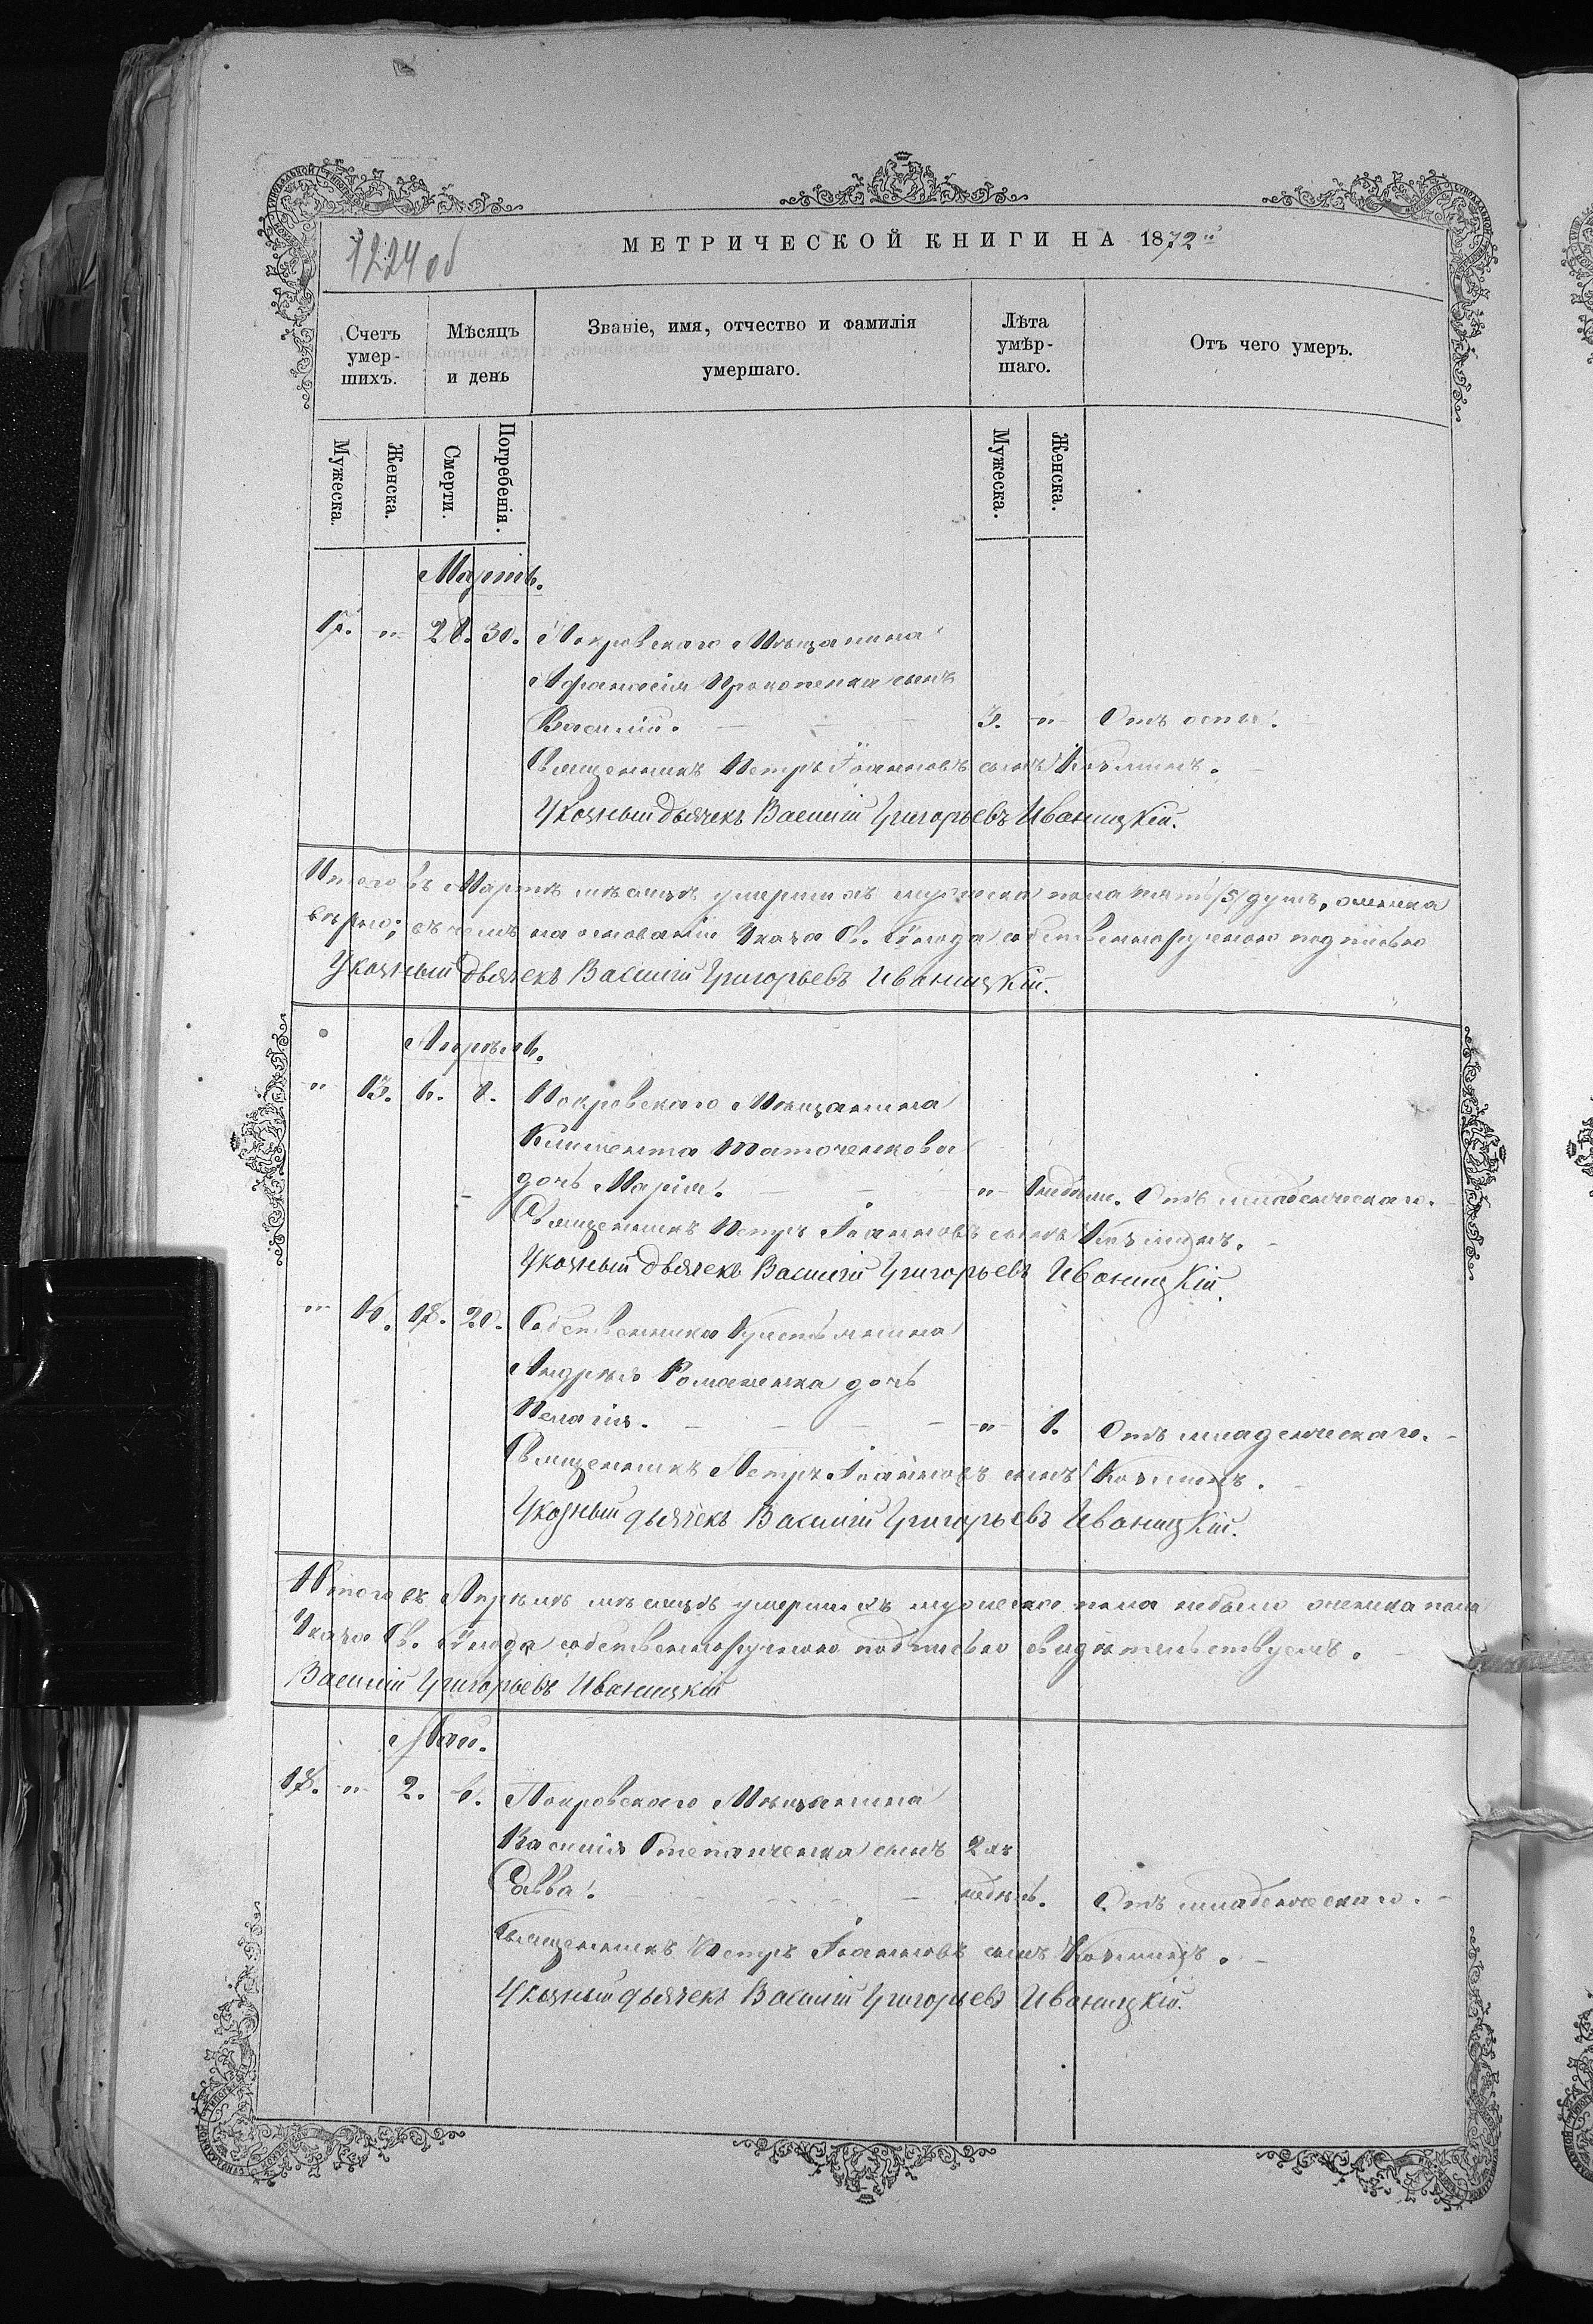 1224 об
МЕТРИЧЕСКОЙ КНИГИ НА 1872й
Счетъ умер-шихъ.
Мѣсяцъ и день
Званіе, имя, отчество и фамилія умершаго.
Лѣта умѣр-шаго.
Отъ чего умеръ.
Мужеска.
Женска.
Смерти.
Погребенія.
Мужеска.
Женска.
Мартъ.
17. " 28. 30. Покровскаго Мѣщанина
Афанасія Прокопенка сынъ
Василій. 3. " Отъ оспы.
Священникъ Петръ Іоанновъ сынъ
Указный дьячекъ Василій Григорьевъ Иваницкій.
Итого въ Мартѣ мѣсяцѣ умершихъ мужеска пола пять /5/ душъ, женска
вѣрно; въ чемъ на основаніи Указа Св. Сѵнода собственноручною подписью
Указный дьячекъ Василій Григорьевъ Иваницкій.
Апрѣль.
" 13. 6. 8. Покровскаго Мѣщанина
Климента
дочь Марія. " Отъ младенческаго.
Священникъ Петръ Іоанновъ сынъ
Указный дьячекъ Василій Григорьевъ Иваницкій.
" 18. 20. Собственника Крестьянина
Андрея Романенка дочь
Пелагія. " 1. Отъ младенческаго.
Священникъ Петръ Іоанновъ сынъ
Указный дьячекъ Василій Григорьевъ Иваницкій.
Итого въ Апрѣлѣ мѣсяцѣ умершихъ мужескаго пола небыло женска пола
Указа Св. Сѵнода собственноручною подписью свидѣтельствуемъ.
Василій Григорьевъ Иваницкій
Май.
18. " 2. Покровскаго Мѣщанина
Василія Степанченка сынъ 2хъ
Савва. недѣль. Отъ младенческаго.
Священникъ Петръ Іоанновъ сынъ
Указный дьячекъ Василій Григорьевъ Иваницкій.